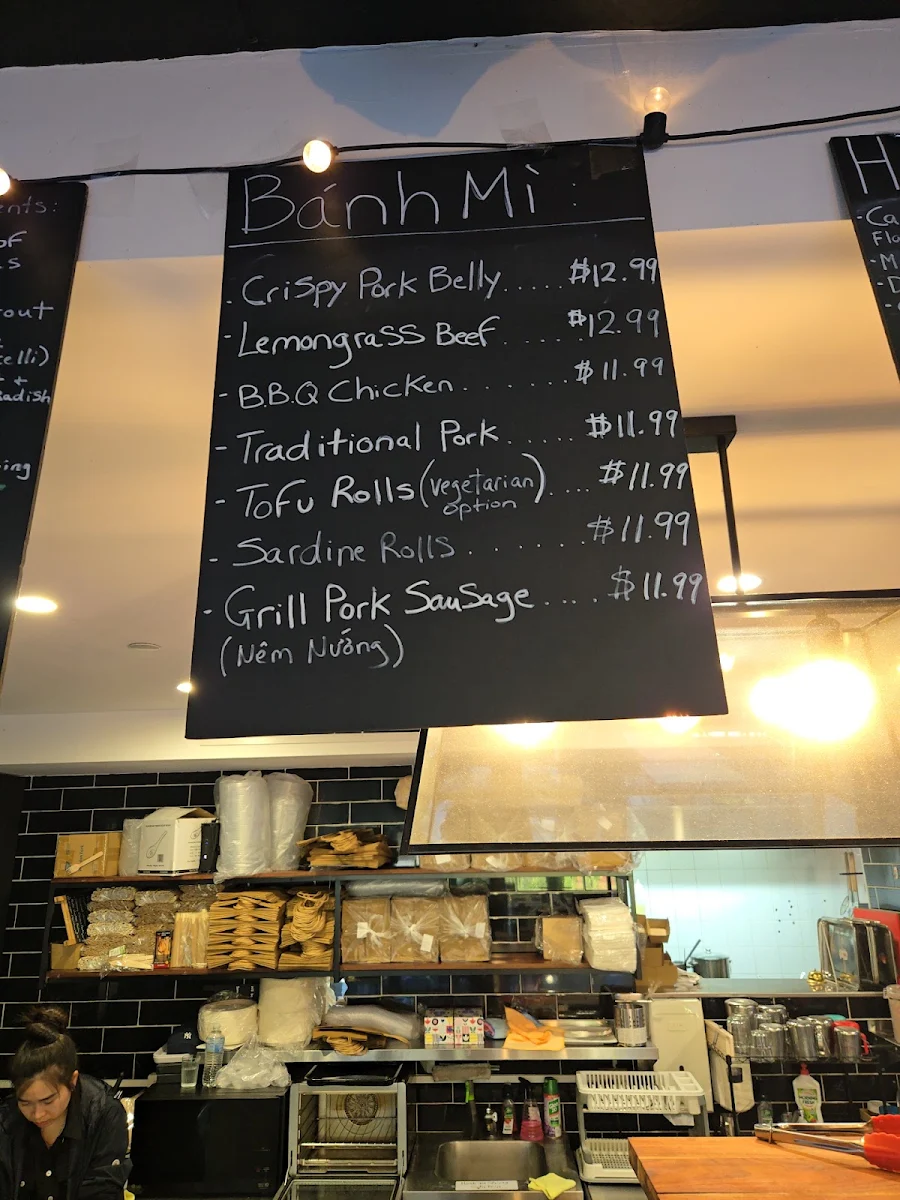 Bánh Mì :
- Crispy Pork Belly..... $12.99
- Lemongrass Beef ...... $12.99
- B.B.Q Chicken....... $11.99
- Traditional Pork...... $11.99
- Tofu Rolls (vegetarian option).... $11.99
- Sardine Rolls........ $11.99
- Grill Pork Sausage.... $11.99
(Nêm Nướng)
ents:
of
s
rout
telli)
+
radish
ing
H
- Ca
Fla
- M
- D